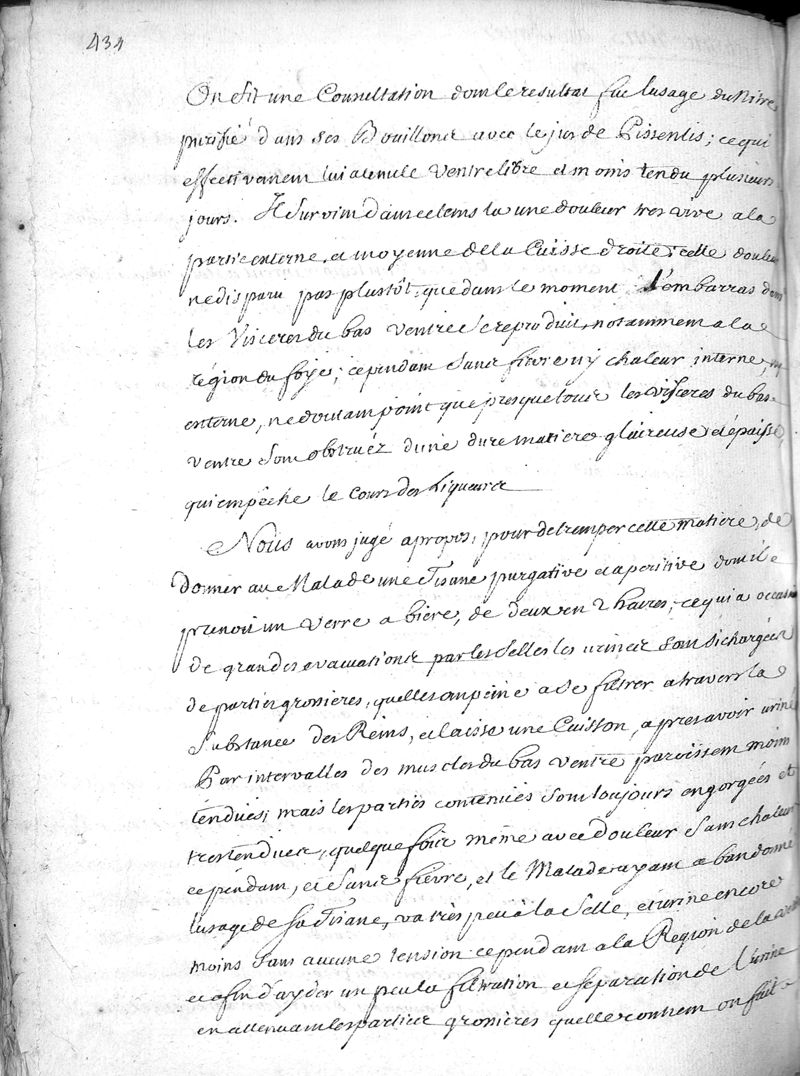 434
On fit une Consultation dont le resultat fut lusage du Nitre
purifié dans ses Bouillons avec le jus de Pissenlis; ce qui
effectivement lui a tenu le Ventre libre et moins tendu plusieurs
jours. Il survint dans ce tems la une douleur tres vive a la
partie externe et moyenne de la Cuisse droite; celle douleur
ne disparu pas plustôt, que dans le moment l'embarras dans
les Visceres du bas Ventre se reproduit, notamment a la
région du foye; cependant sans fievre ny chaleur interne, ny
externe, ne doutant point que presque tous les visceres du bas
ventre sont obstruéz d'une dure matiere glaireuse et épaisse,
qui empêche le Cours des Liqueurs
Nous avons jugé apropos, pour detremper cette matiere, de
donner au Malade une Tisane purgative et aperitive dont il
prenoit un Verre a biere, de deux en 2 heures; ce qui a occasi
de grandes evacuations par les Selles les urines sont dichargées
de parties grosieres, quelles ont peine a se filtrer a travers la
Substance des Reins, et laisse une Cuisson, apres avoir uriné
Par intervalles des muscles du bas Ventre paroissent moins
tendues; mais les parties contenues sont toujours engorgées et
tres tendues, quelque fois même avec douleur sans chaleur
cependant, et sans fievre, et le Malade ayant abandonné
lusage de sa Tisane, va très peu à la Selle, et urine encore
moins sans aucune tension cependant a la Region de la
et afin d'ayder un peu la filtration et séparation de l'urine
en attenuant les parties grosieres quelle contient on fait